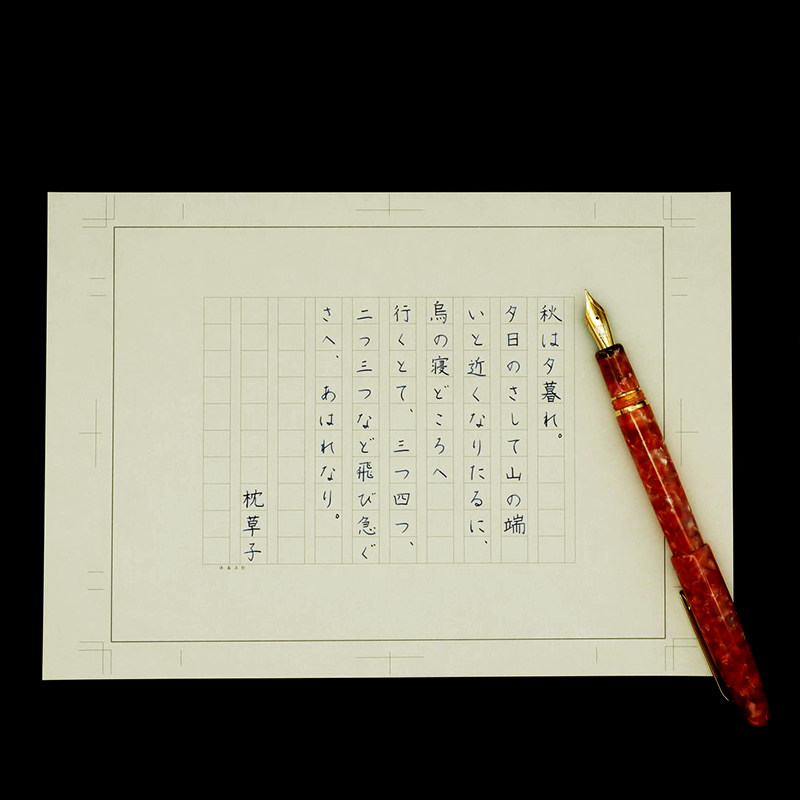 秋は夕暮れ。
夕日のさして山の端
いと近くなりたるに、
烏の寝どころへ
行くとて、三つ四つ、
二つ三つなど飛び急ぐ
さへ、あはれなり。
枕草子